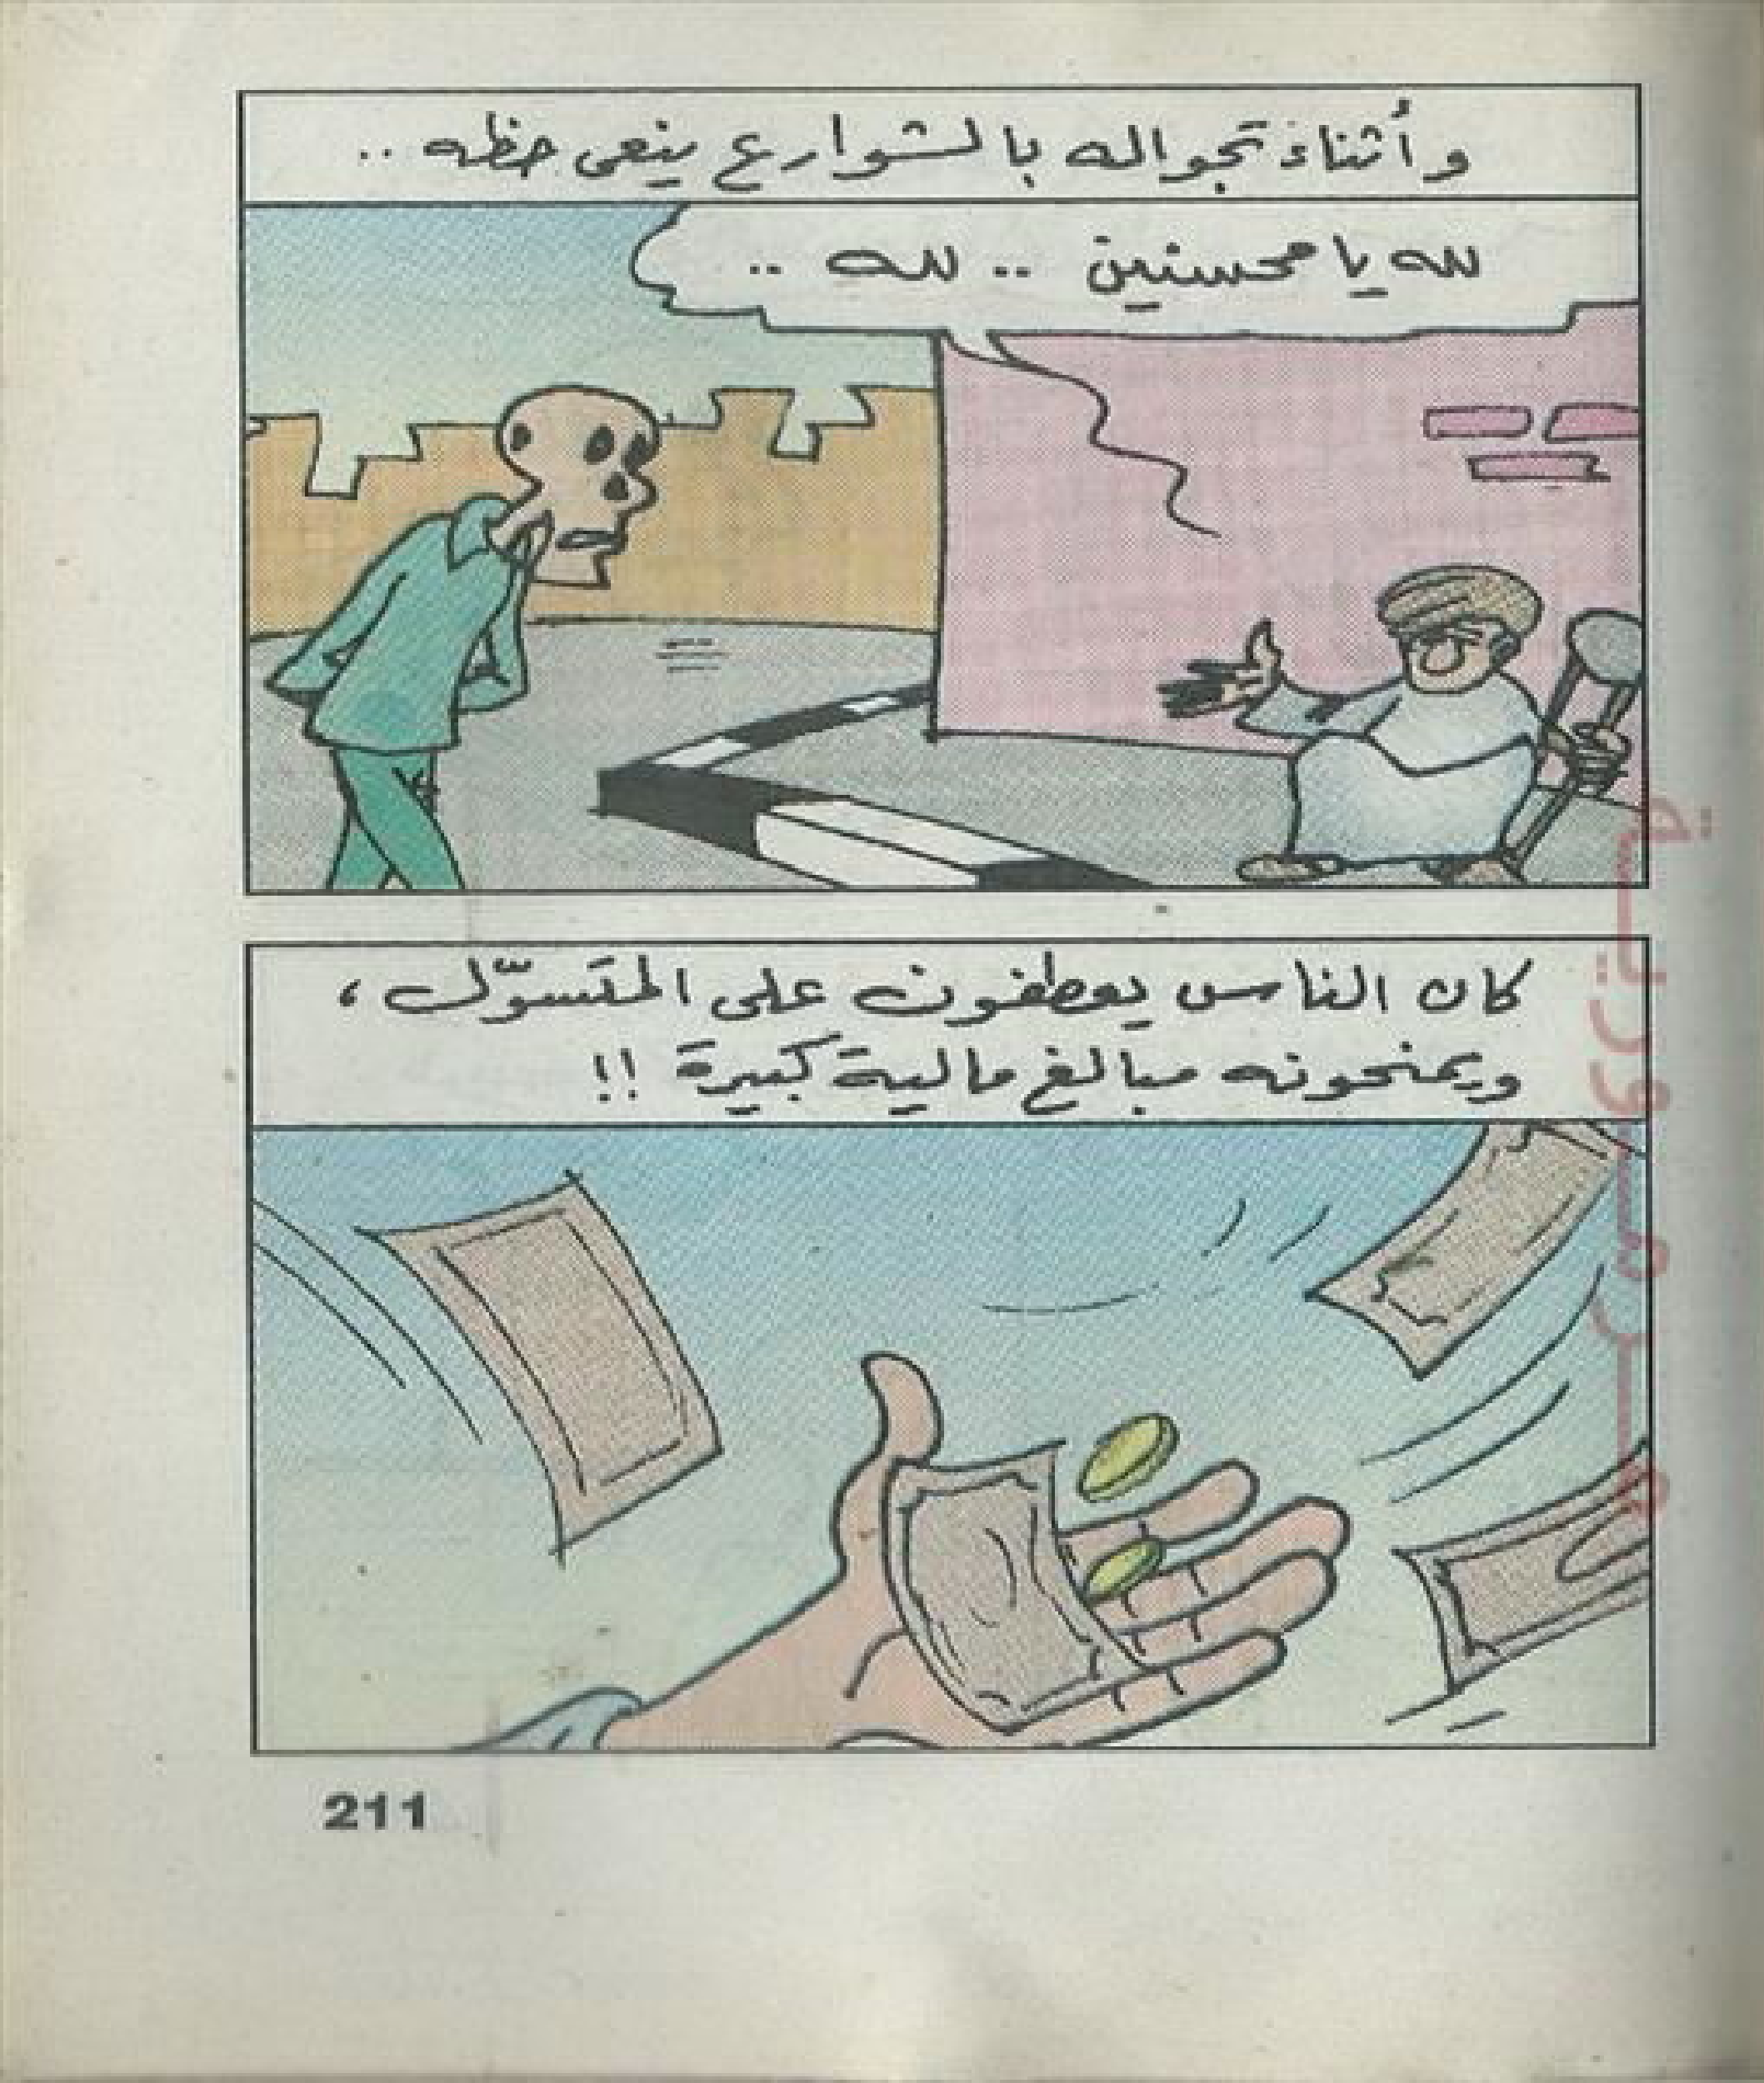 وأثناء تجواله بالشوارع ينعى حظه ..
لله يا محسنين .. لله ..
كان الناس يعطفون على المتسوّل ،
ويمنحونه مبالغ مالية كبيرة !!
211